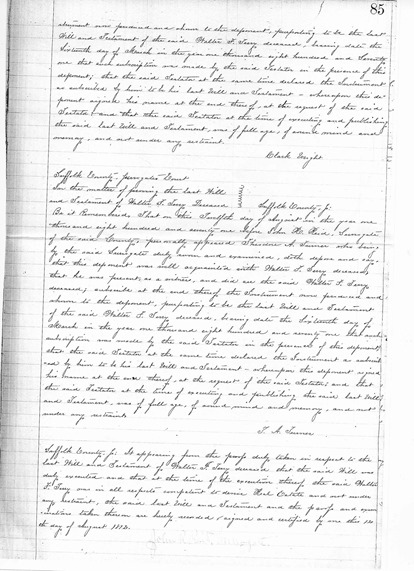 85
strument now produced and shown to the deponent, purporting to be the last
Will and Testament of the said Walter F. Terry deceased, bearing date the
Sixteenth day of March in the year one thousand eight hundred and Seventy
one that such subscription was made by the said Testator in the presence of this
deponent; that the said Testator at the same time declared the Instrument
so subscribed by him to be his last Will and Testament - whereupon this de
ponent signed his name at the end thereof, at the request of the said
Testator - and that the said Testator at the time of executing and publishing
the said last Will and Testament, was of full age, of sound mind and
memory, and not under any restraint.
Clark Wright
Suffolk County, Surrogates Court
In the matter of proving the last Will
and Testament of Walter F. Terry Deceased
Suffolk County, ss
Be it Remembered That on this Twelfth day of August in the year one
thousand eight hundred and seventy one before John R. Reid, Surrogate
of the said County, personally appeared Theodore A. Turner who being
by the said Surrogate duly sworn and examined, doth depose and say
that this deponent was well acquainted with Walter F. Terry deceased,
that he was present as a witness, and did see the said Walter F. Terry
deceased, subscribe at the end thereof the Instrument now produced and
shown to the deponent, purporting to be the last Will and Testament
of the said Walter F. Terry deceased, bearing date the Sixteenth day of
March in the year one thousand eight hundred and seventy one that such
subscription was made by the said Testator in the presence of this deponent;
that the said Testator at the same time declared the Instrument so subscri
bed by him to be his last Will and Testament - whereupon this deponent signed
his name at the end thereof, at the request of the said Testator; and that
the said Testator at the time of executing and publishing the said last Will
and Testament, was of full age, of sound mind and memory, and not
under any restraint.
T. A. Turner
Suffolk County, ss. It appearing from the proofs duly taken in respect to the
last Will and Testament of Walter F. Terry deceased that the said Will was
duly executed and that at the time of the execution thereof the said Walter
F. Terry was in all respects competent to devise Real Estate and not under
any restraint, the said last Will and Testament and the proofs and exam
inations taken thereon are hereby recorded, signed and certified by me this 12
th day of August